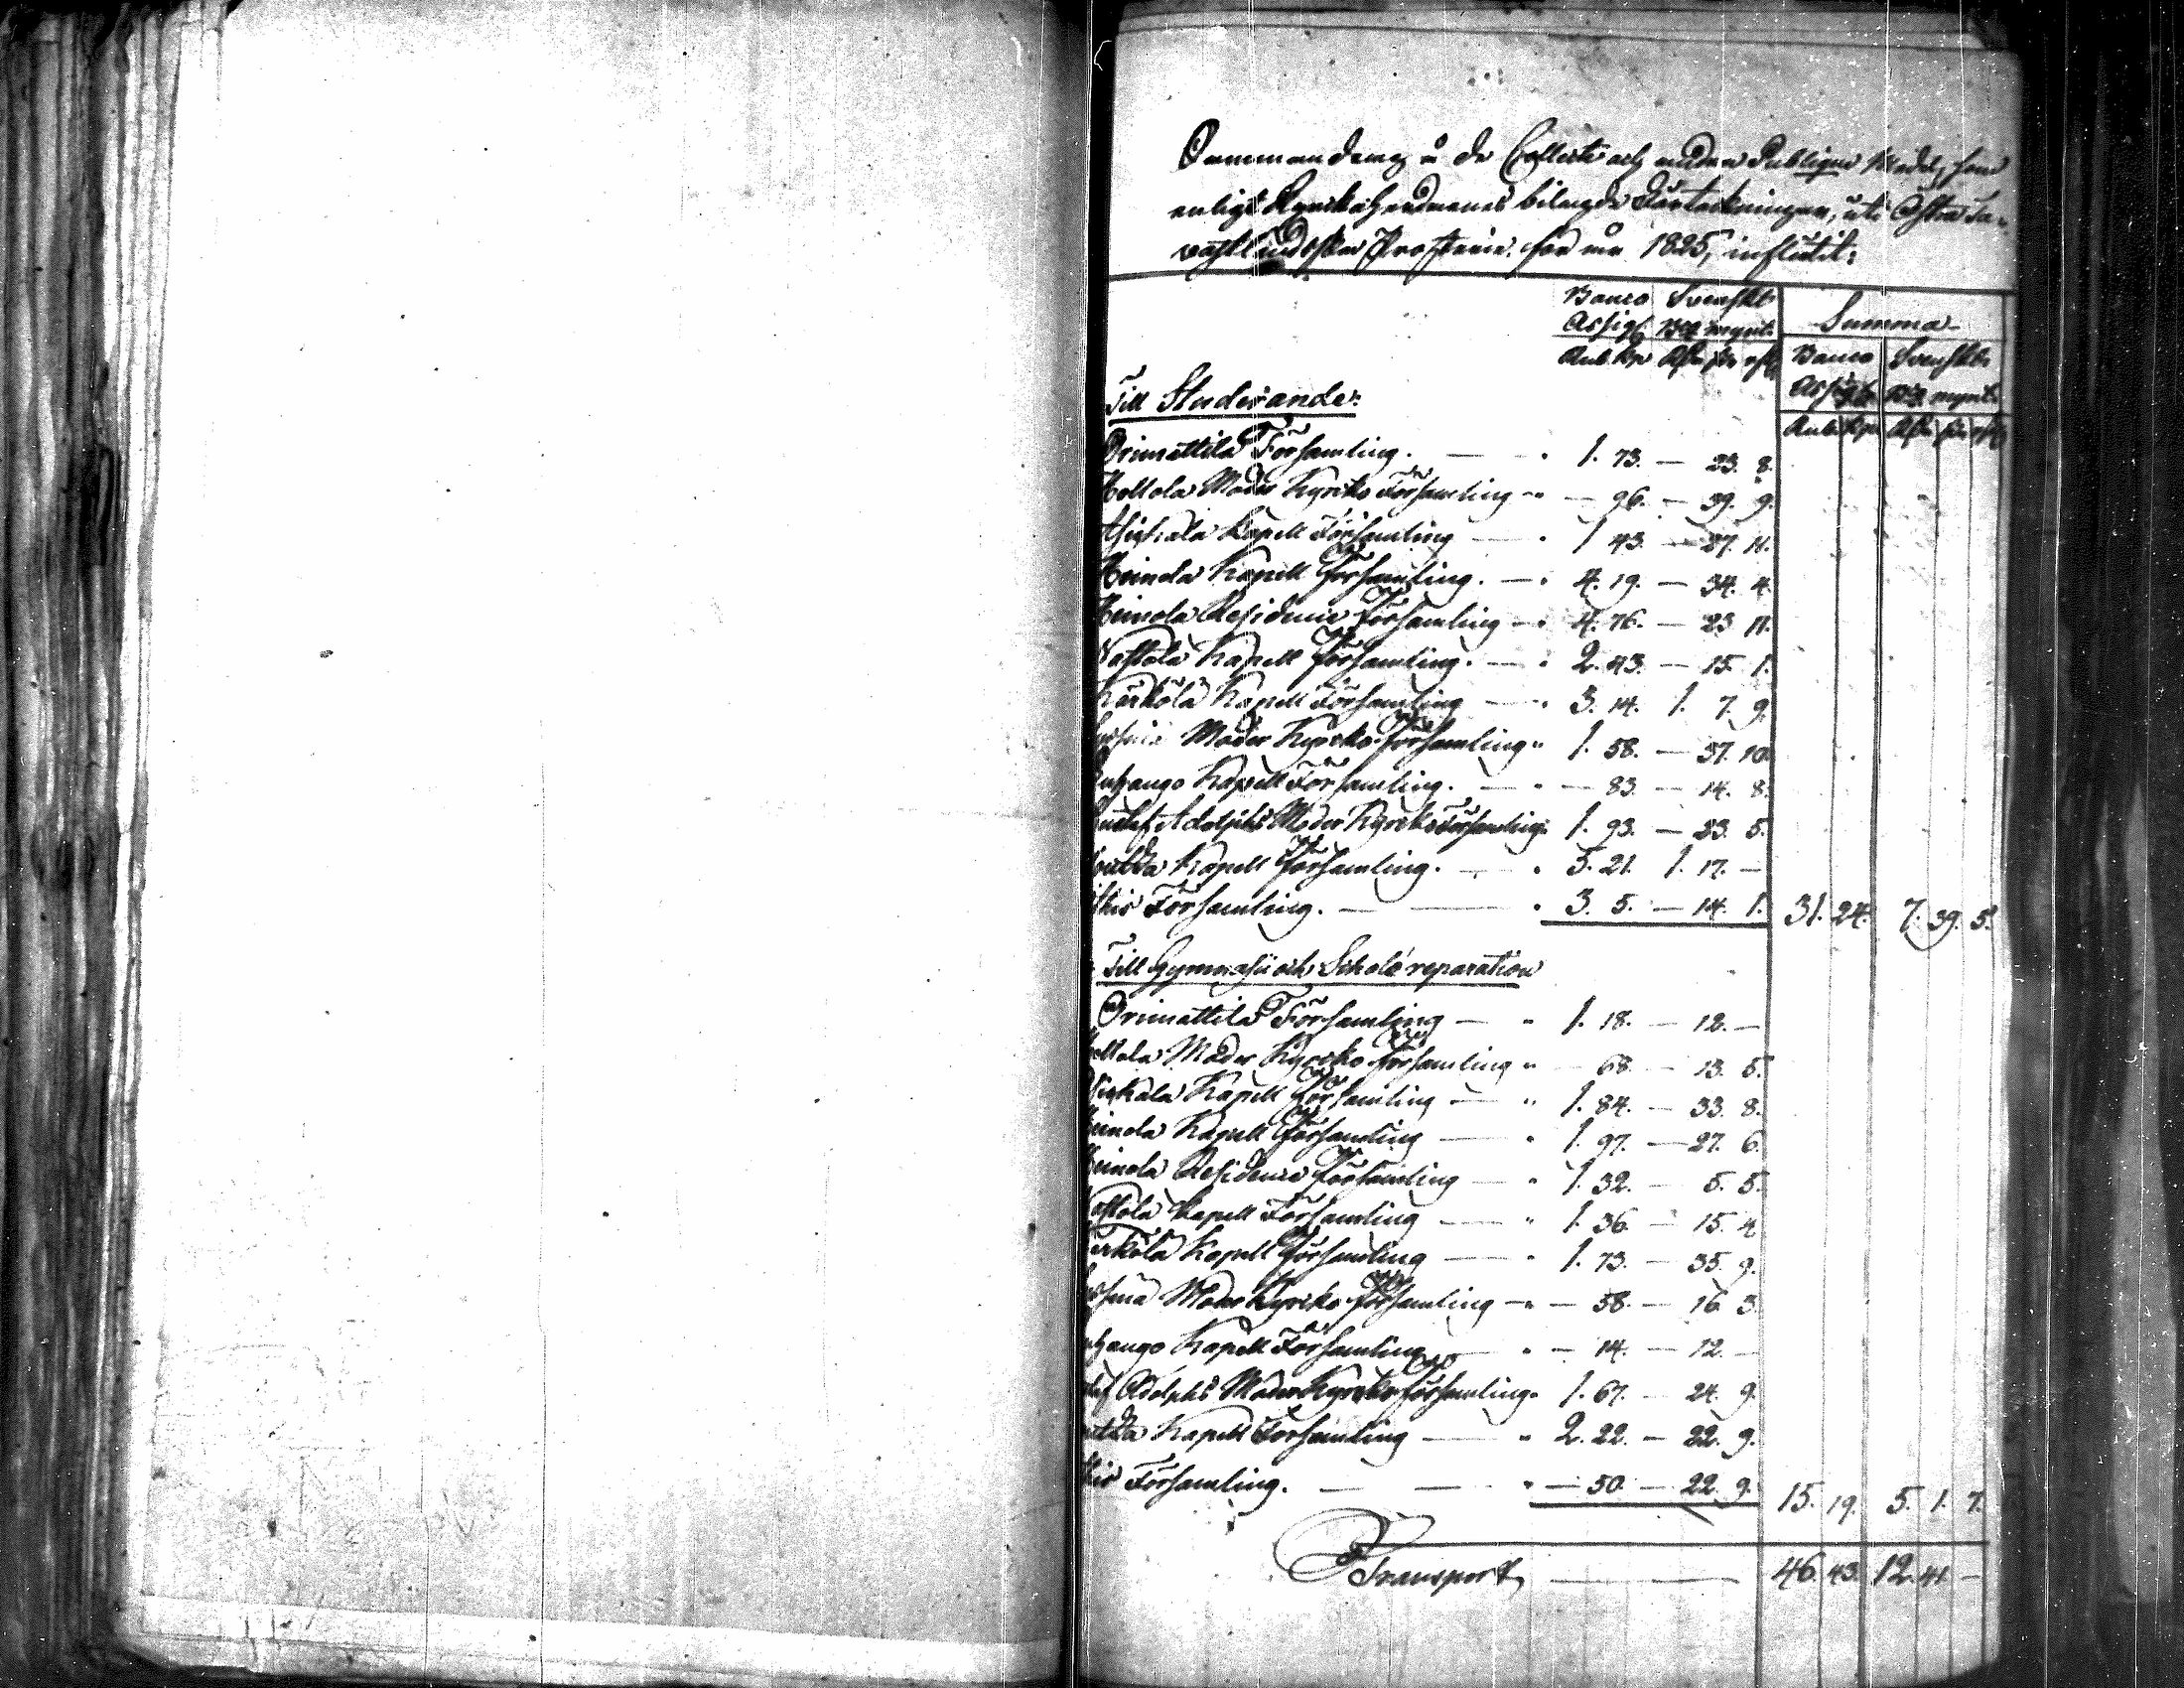 Sammandrag å de Collecte och andra Publique Medel, som
enligt Kyrkoherdarnes bilagde Förteckningar, uti Östra Ta-
vastländska Prosteriet för år 1825, influtit:
Banco Svenskt
Assig. Bco mynt. Summa
Rub. Kop. Rdr sk. rst. Banco Svenskt
Till Studerande: Assig. Bco mynt.
Rub. Kop. Rdr sk. rst.
Orimattila Församling. — 1. 73. — 23. 8.
Hollola Moder Kyrko Församling — 96. — 39. 9.
Asikkala Kapell Församling — 1 43. — 27. 11.
Heinola Kapell Församling. — 4. 19. — 34. 4.
Heinola Residence Församling — 4. 76. — 23 11.
Nastola Kapell Församling. — 2. 43. — 15. 1.
Kärkölä Kapell Församling — 3. 14. 1. 7. 9.
Moder Kyrko Församling 1. 58. — 37. 10.
Kapell Församling. — 83. — 14. 8.
Adolphs Moder Kyrko Församling 1. 93. — 23. 5.
Kapell Församling. — 5. 21. 1. 17. —
Församling. — 3. 5. — 14. 1. 31. 24. 7. 39. 5.
Till Gymnasii och Schole reparation
Orimattila Församling — 1. 18. — 12. —
Moder Kyrko Församling — 68. — 13. 5.
Kapell Församling — 1. 84. — 33. 8.
Kapell Församling — 1. 97. — 27. 6.
Residence Församling — 1. 32. — 5. 5.
Kapell Församling — 1. 36. — 15. 4
Kapell Församling — 1. 73. — 35. 9.
Moder Kyrko Församling — — 58. — 16. 3.
Kapell Församling — — 14. — 12. —
Adolphs Moder Kyrko Församling 1. 67. — 24. 9.
Kapell Församling — 2. 22. — 22. 9.
Församling. — — 50. — 22. 9. 15. 19. 5. 1. 7.
Transport — 46. 43. 12. 41. —